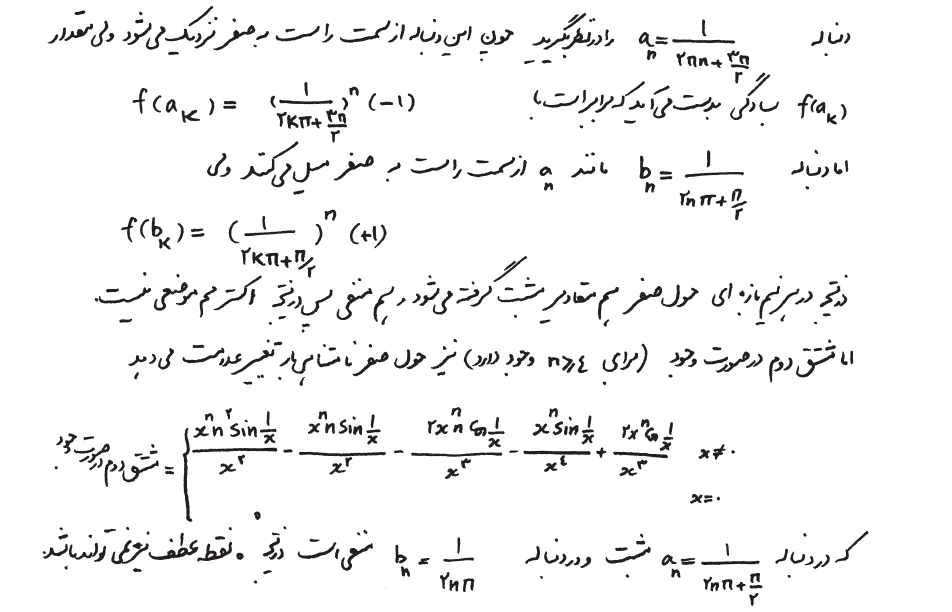 دنباله a_n = ۱/(۲πn + ۳π/۲) را درنظر بگیرید چون این دنباله از سمت راست به صفر نزدیک می‌شود ولی مقدار
f(a_k) بسادگی بدست می‌آید که برابر است با f(a_k) = (۱/(۲kπ + ۳π/۲))^n (-۱)
اما دنباله b_n = ۱/(۲nπ + π/۲) مانند a_n از سمت راست به صفر میل می‌کند ولی
f(b_k) = (۱/(۲kπ + π/۲))^n (+۱)
درنتیجه در هر نیم بازه ای حول صفر هم مقادیر مثبت گرفته می‌شود و هم منفی پس درنتیجه اکسترمم موضعی نیست.
اما مشتق دوم درصورت وجود (برای n ≥ ۴ وجود دارد) نیز حول صفر نامتناهی بار تغییر علامت می دهد
مشتق دوم درصورت وجود = { x^n n^۲ sin(۱/x)/x^۲ - x^n n sin(۱/x)/x^۲ - ۲x^n n cos(۱/x)/x^۳ - x^n sin(۱/x)/x^۴ + ۲x^n cos(۱/x)/x^۳ x ≠ ۰
۰ x = ۰
که در دنباله a_n = ۱/(۲nπ + π/۲) مثبت و در دنباله b_n = ۱/(۲nπ) منفی است درنتیجه ۰ نقطه عطف نیز نمی تواند باشد.